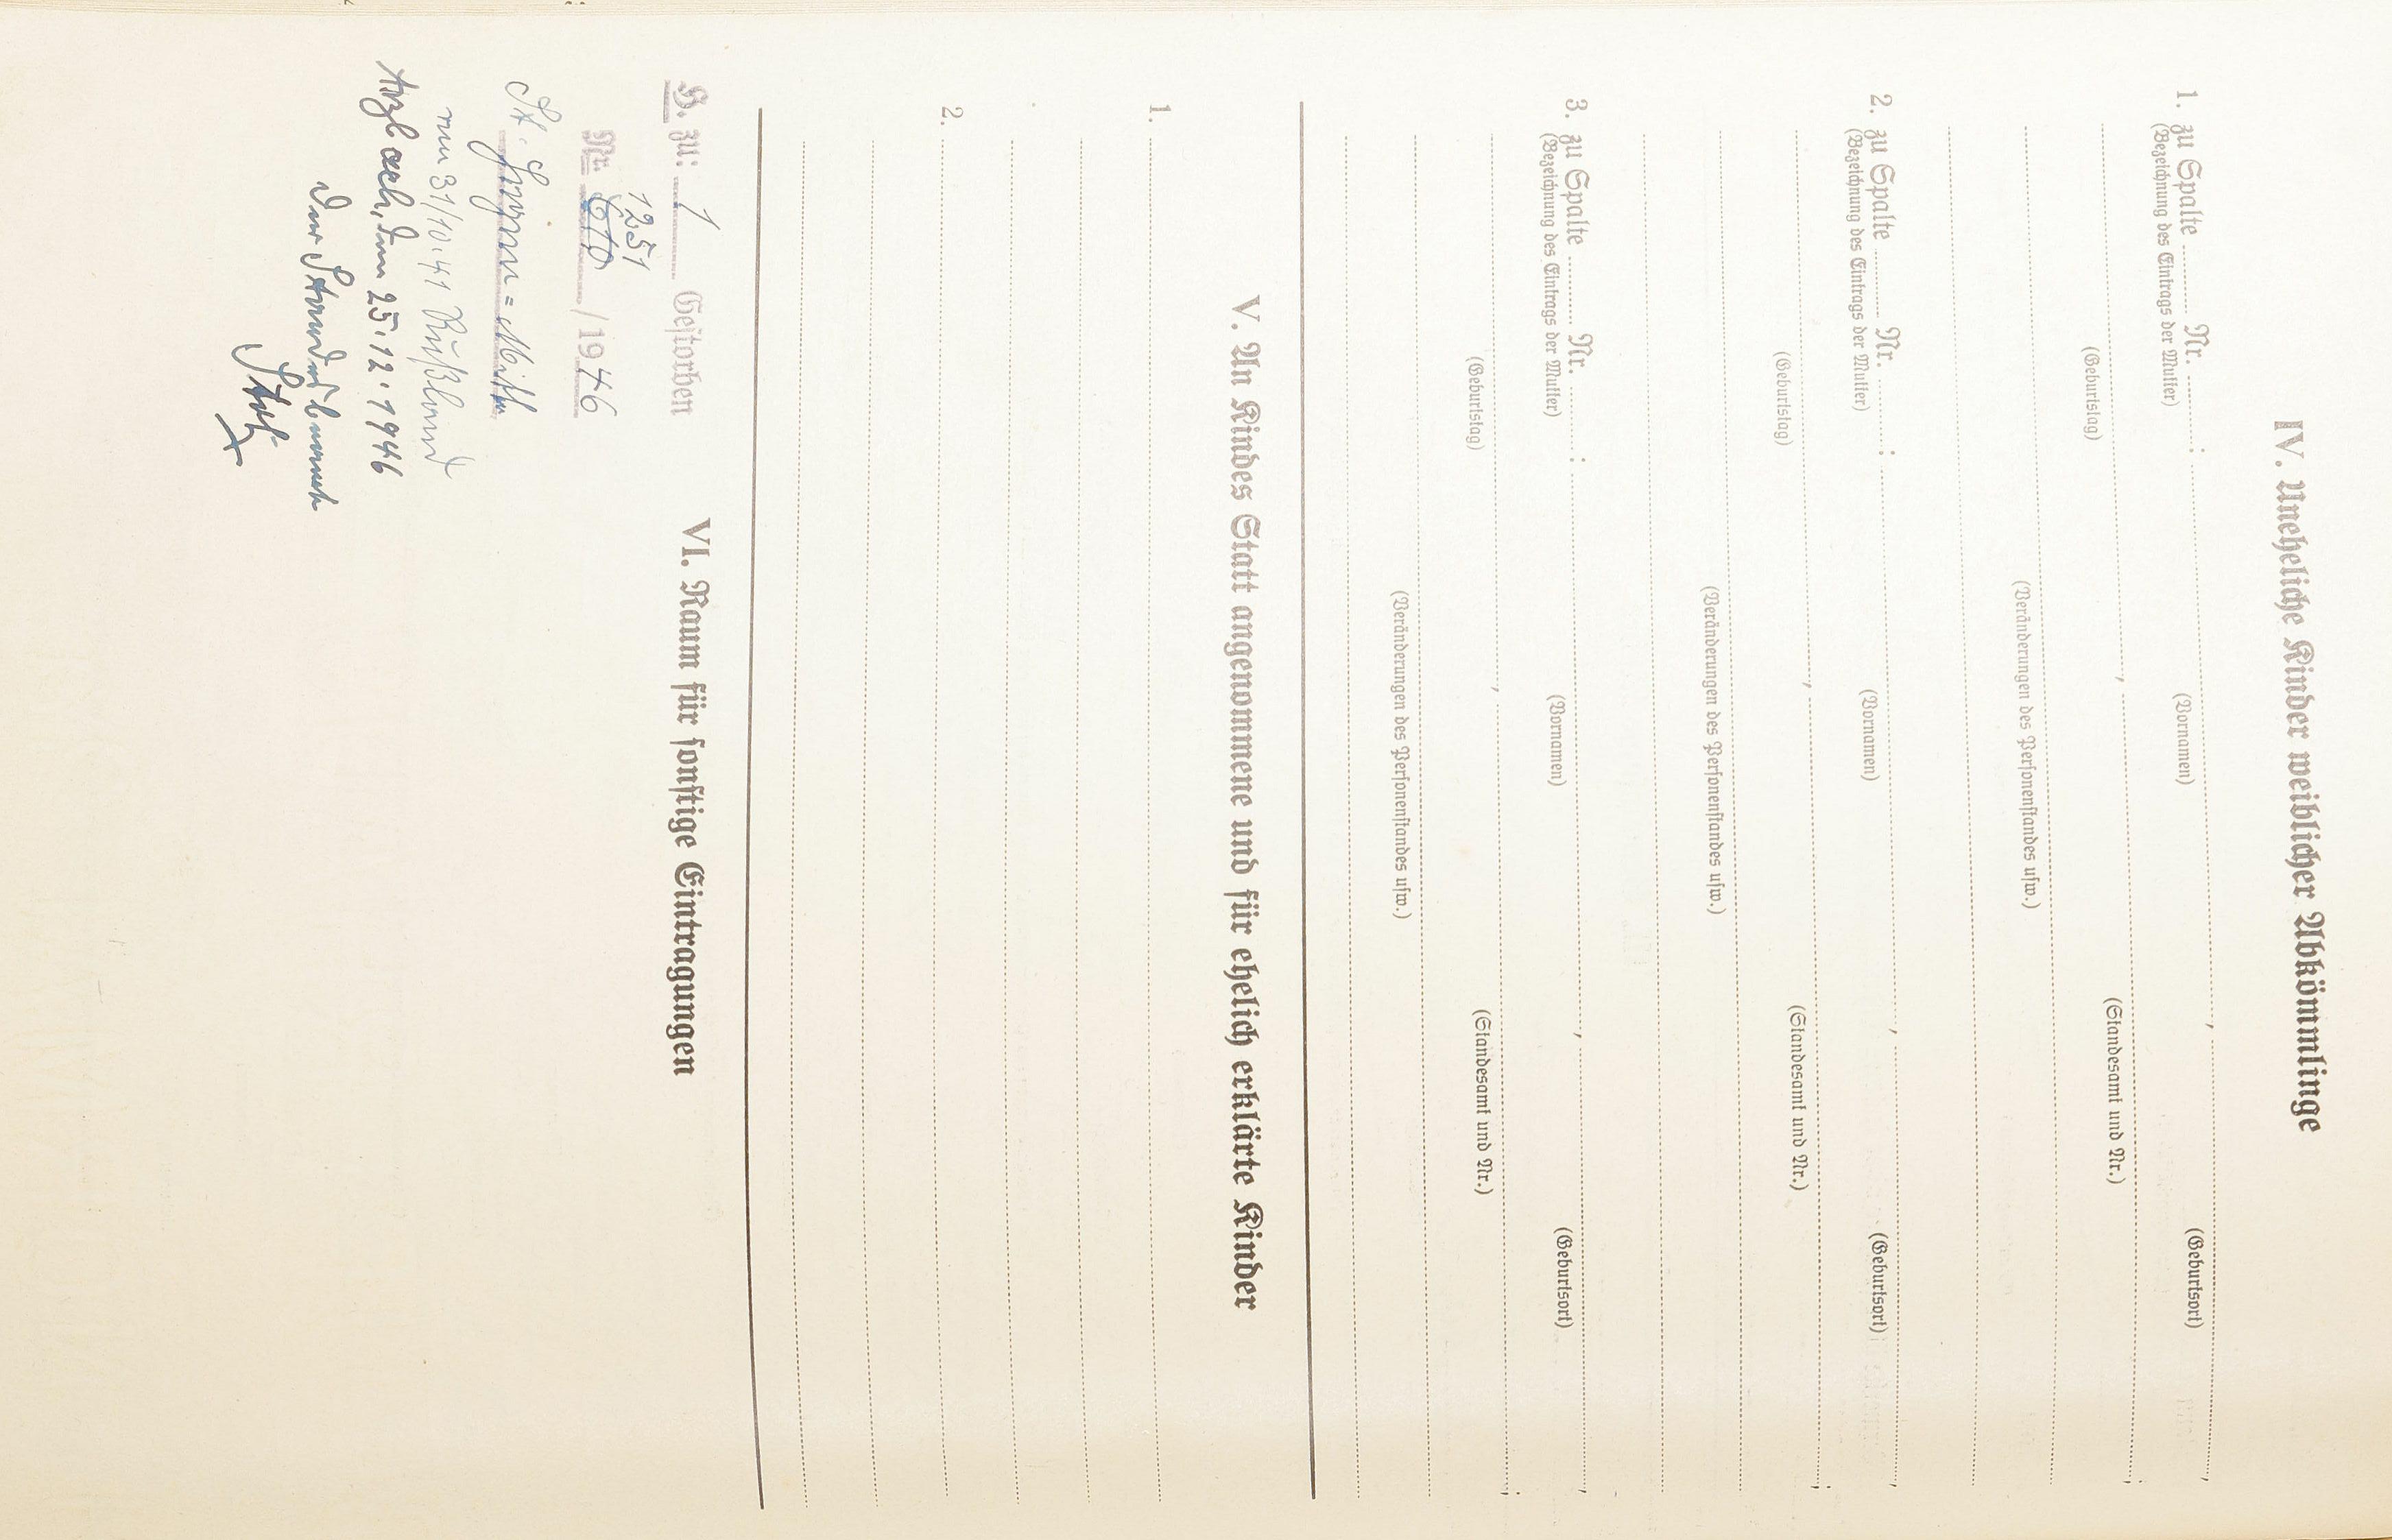 IV. Uneheliche Kinder weiblicher Abkömmlinge
1. zu Spalte ........ Nr. ........ : ........ , ........ ,
(Bezeichnung des Eintrags der Mutter) (Vornamen) (Geburtsort)
........ , ........ ;
(Geburtstag) (Standesamt und Nr.)
(Veränderungen des Personenstandes usw.)
2. zu Spalte ........ Nr. ........ : ........ , ........ ,
(Bezeichnung des Eintrags der Mutter) (Vornamen) (Geburtsort)
........ , ........ ;
(Geburtstag) (Standesamt und Nr.)
(Veränderungen des Personenstandes usw.)
3. zu Spalte ........ Nr. ........ : ........ , ........ ,
(Bezeichnung des Eintrags der Mutter) (Vornamen) (Geburtsort)
........ , ........ ;
(Geburtstag) (Standesamt und Nr.)
(Veränderungen des Personenstandes usw.)
V. An Kindes Statt angenommene und für ehelich erklärte Kinder
1.
2.
VI. Raum für sonstige Eintragungen
H. zu: 1 Gestorben
1251
Nr. / 1946
St. =
am 31/10.41 Rußland
Arzbach, den 25.12.1946
Der Standesbeamte